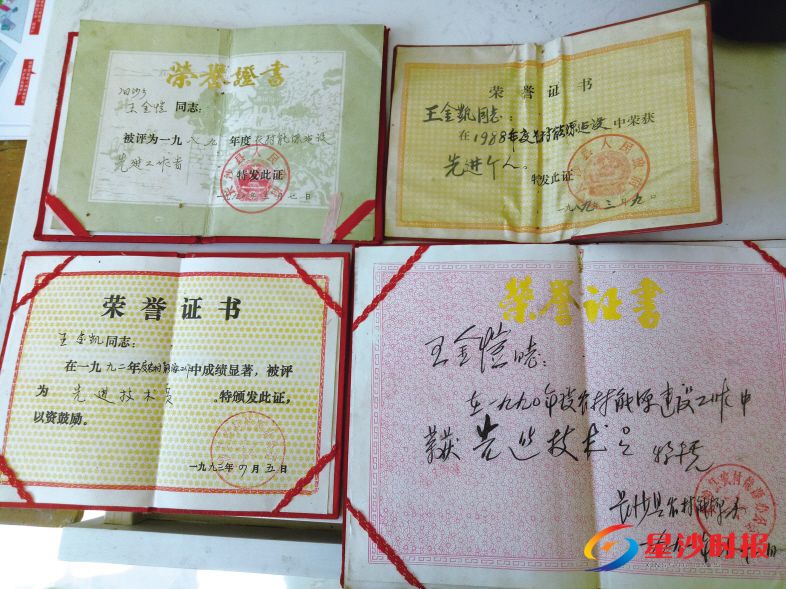 荣誉證書
王金恺 同志：
被评为一九八九年度农村能源建设
先进工作者
特发此证
长沙县人民政府
荣誉证书
王金凯同志：
在1988年度农村能源建设中荣获
先进个人。
特发此证
一九八九年三月九日
荣誉证书
王金凯同志：
在一九九二年度农村能源工作中成绩显著，被评
为 先进技术员 。特颁发此证，
以资鼓励。
一九九三年 月五日
荣誉证书
王金恺同志：
在一九九〇年度农村能源建设工作中
荣获 先进技术员
长沙县农村能源
星沙时报